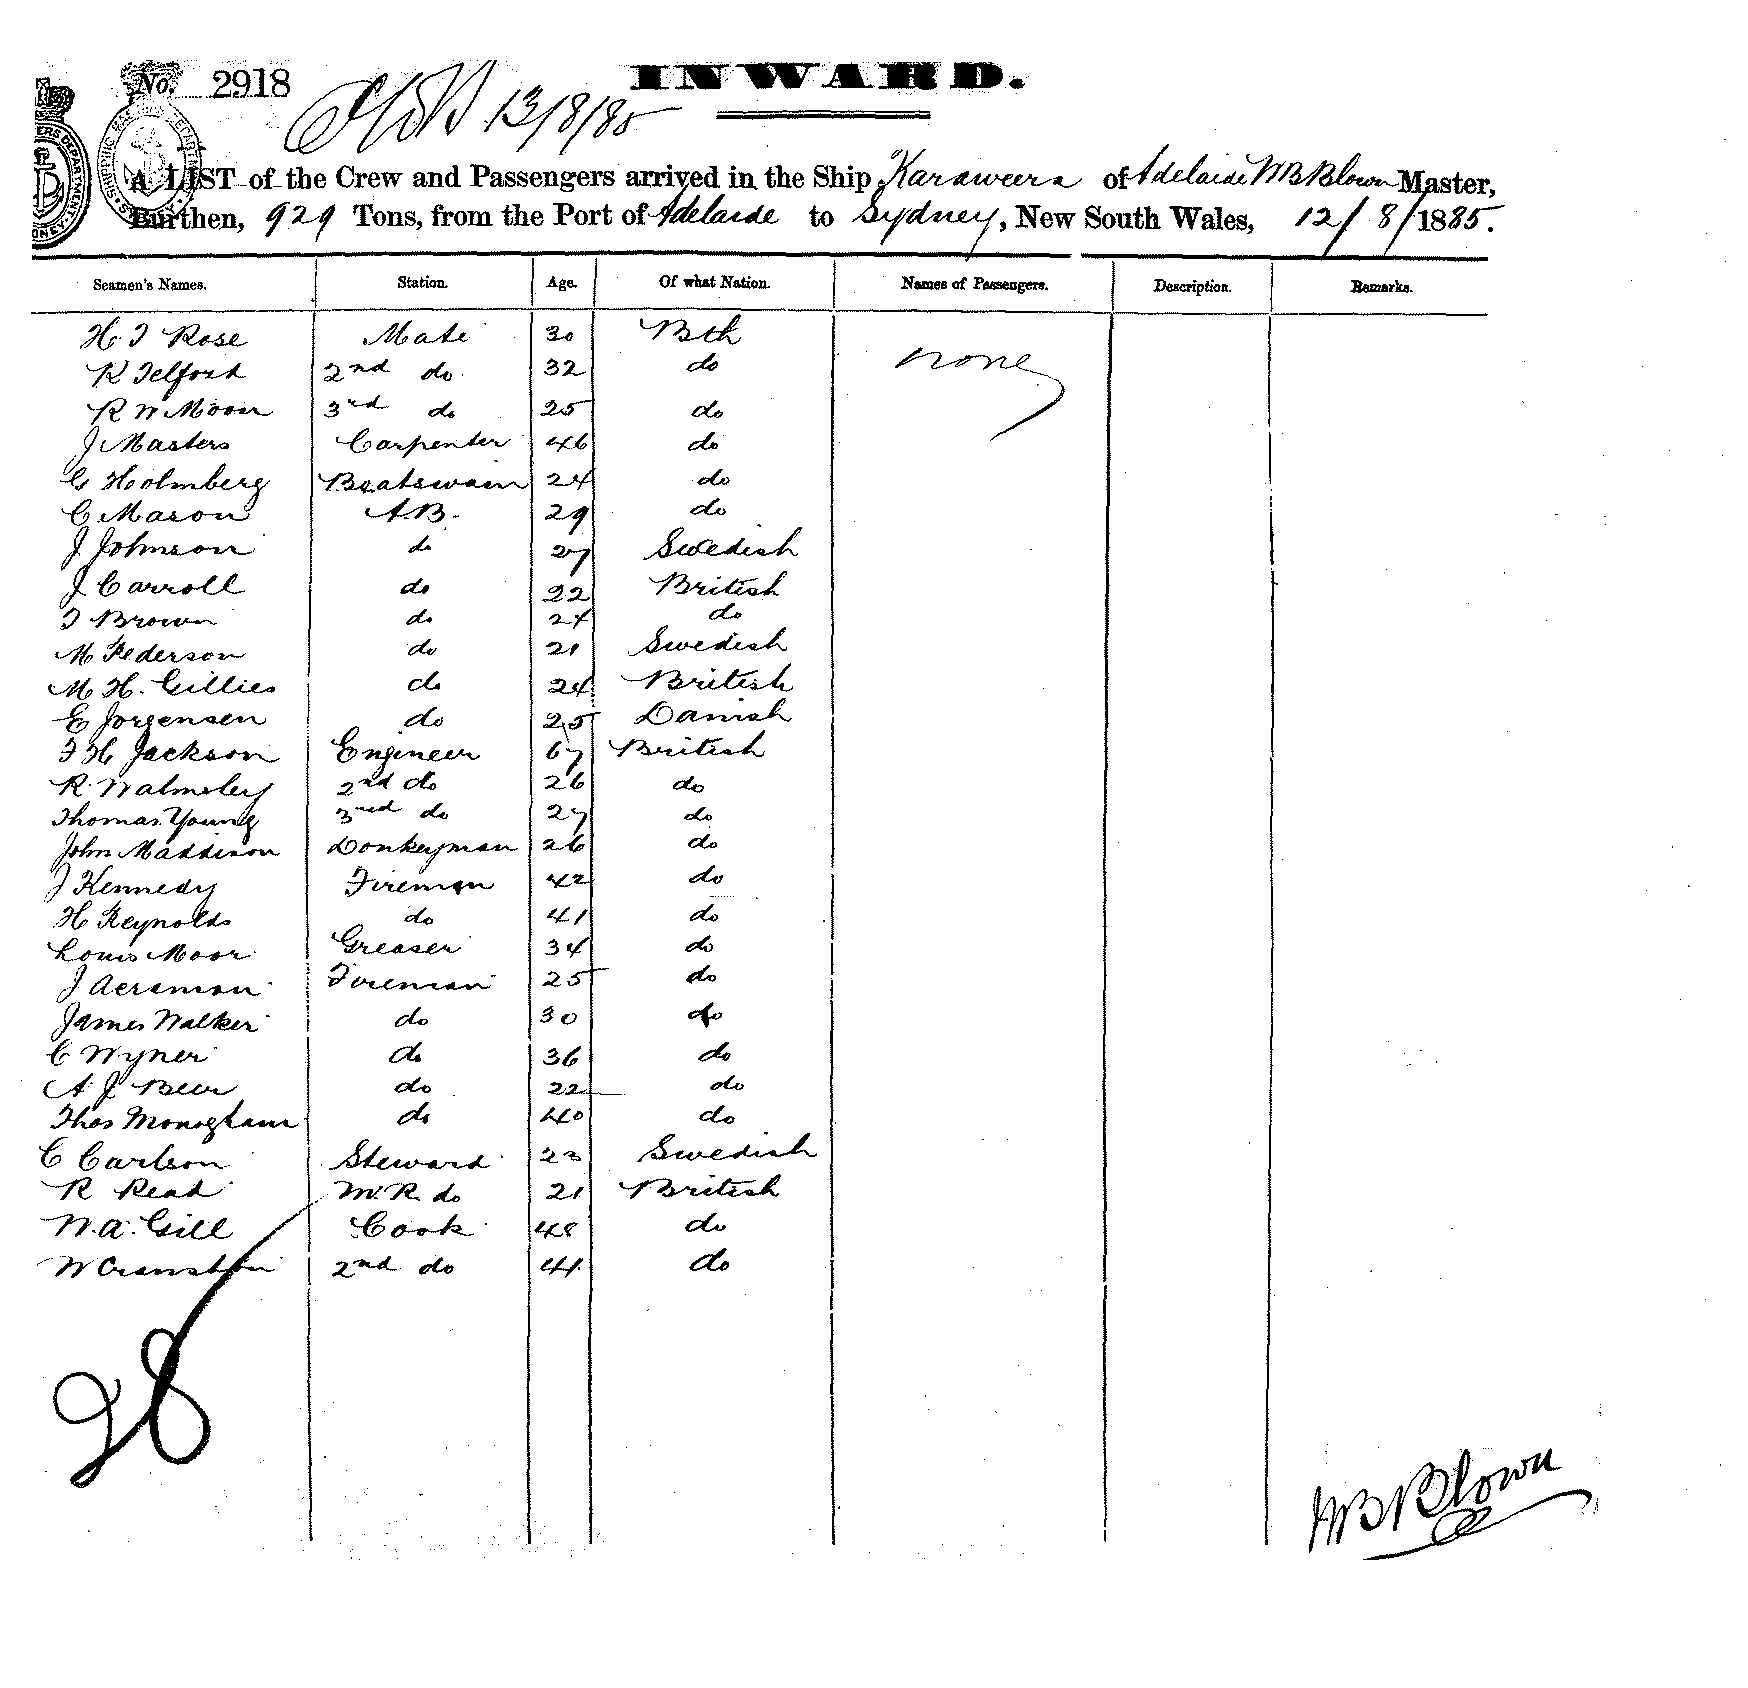 No. 2918
INWARD.
13/8/85
A LIST of the Crew and Passengers arrived in the Ship Karaweera of Adelaide WB Blown Master,
Burthen, 929 Tons, from the Port of Adelaide to Sydney, New South Wales, 12/8/1885.
Seamen's Names. Station. Age. Of what Nation. Names of Passengers. Description. Remarks.
H. J Rose Mate 30 Bth
R Telford 2nd do 32 do none
R W Moon 3rd do 25 do
J Masters Carpenter 46 do
C Holmberg Boatswain 24 do
C Mason A.B. 29 do
J Johnson do 27 Swedish
J Carroll do 22 British
T Brown do 24 do
M Pederson do 21 Swedish
M H. Gillies do 24 British
E Jorgensen do 25 Danish
F H Jackson Engineer 67 British
R. Walmsley 2nd do 26 do
Thomas Young 3rd do 27 do
John Maddison Donkeyman 26 do
J Kennedy Fireman 42 do
H Reynolds do 41 do
Louis Moor Greaser 34 do
J Acraman Fireman 25 do
James Walker do 30 do
C Wyner do 36 do
A. J. Beer do 22 do
Thos Monogham do 40 do
C Carlson Steward 23 Swedish
R Read M.R. do 21 British
W. A. Gill Cook 48 do
W Cranston 2nd do 41 do
28
WB Blown